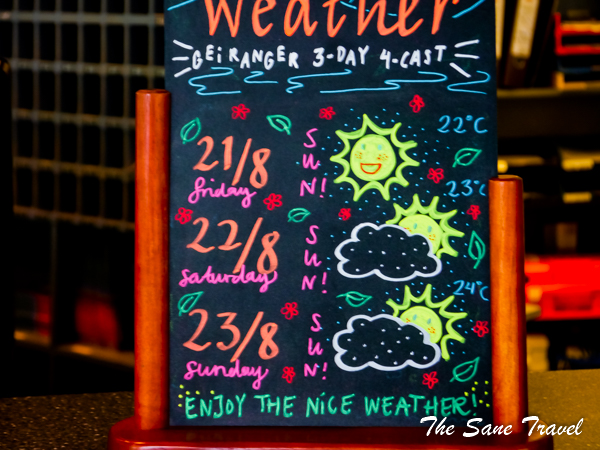 Weather
GEiRANGER 3-DAY 4-CAST
22°C
21/8
friday
SUN!
23°C
22/8
saturday
SUN!
24°C
23/8
sunday
SUN!
ENJOY THE NiCE WEATHER!
The Sane Travel